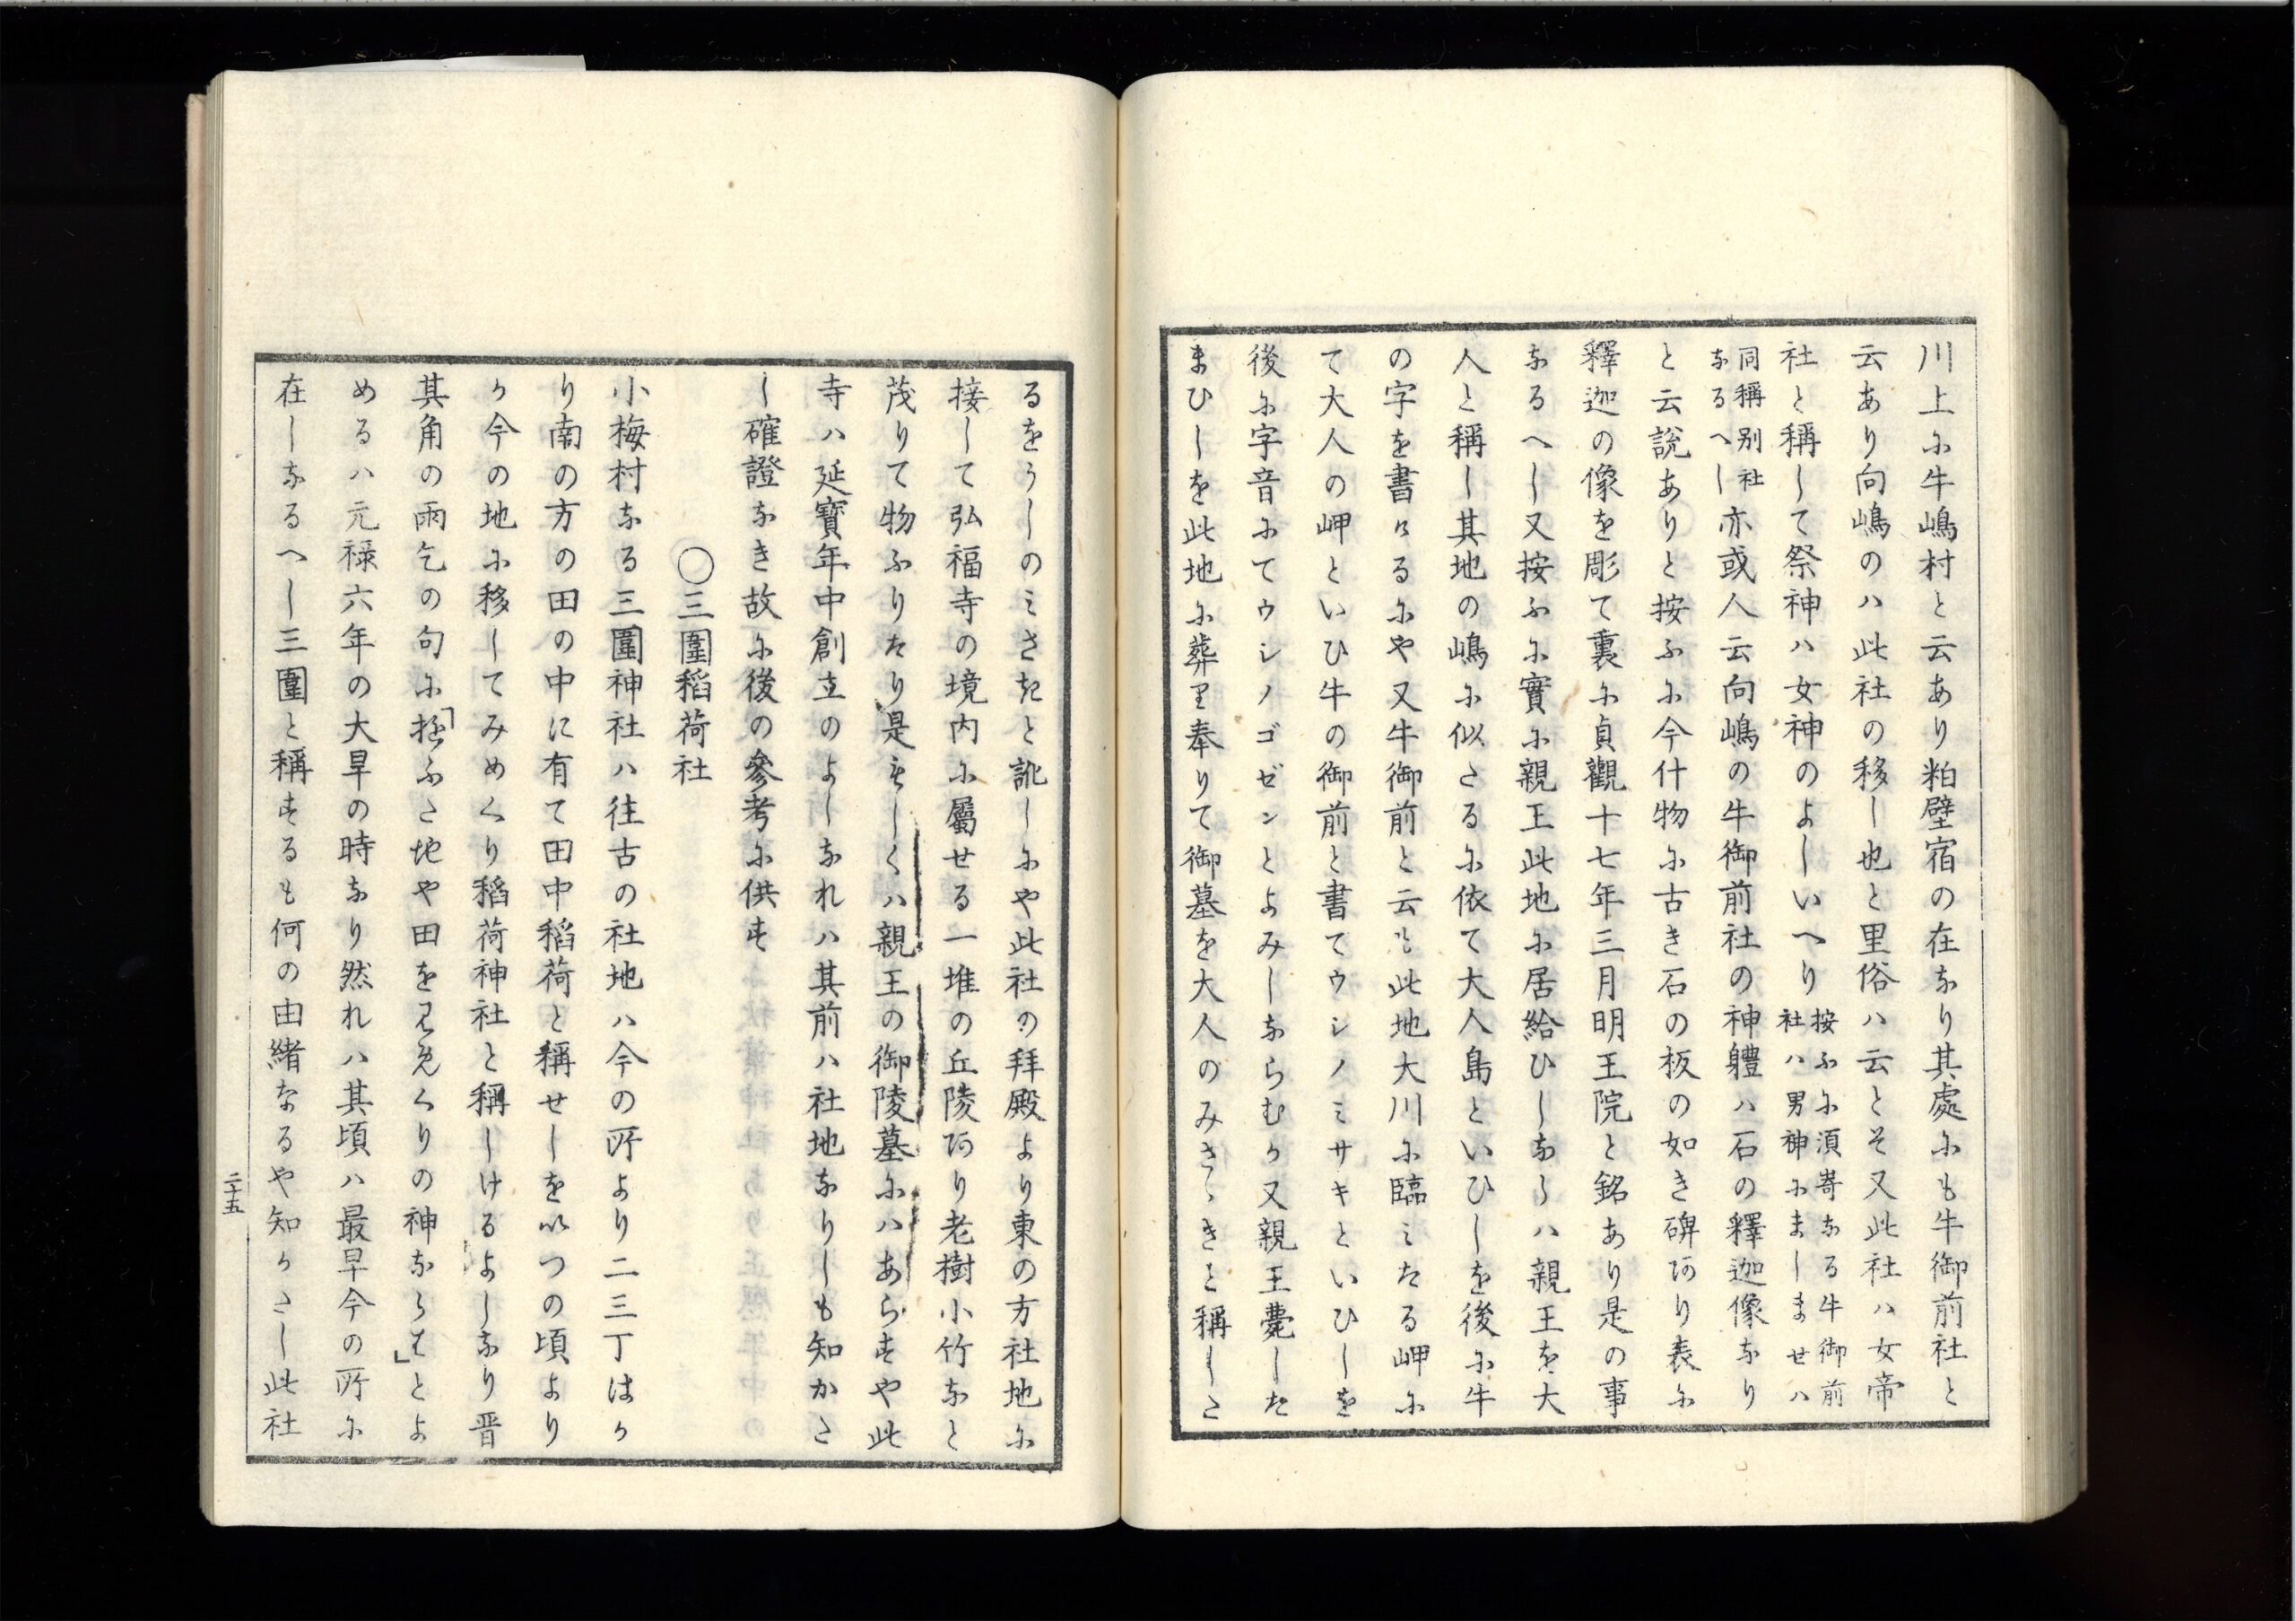 川上に牛嶋村と云あり粕壁宿の在なり其處にも牛御前社と
云あり向嶋のハ此社の移し也と里俗ハ云とそ又此社ハ女帝
社と稱して祭神ハ女神のよしいへり按ふに須嵜なる牛御前
社ハ男神にましませハ
同稱別社
なるへし亦或人云向嶋の牛御前社の神軆ハ石の釋迦像なり
と云説ありと按ふに今什物に古き石の板の如き碑あり表に
釋迦の像を彫て裏に貞觀十七年三月明王院と銘あり是の事
なるへし又按ふに實に親王此地に居給ひしならハ親王を大
人と稱し其地の嶋に似たるに依て大人島といひしを後に牛
の字を書けるにや又牛御前と云も此地大川に臨ミたる岬に
て大人の岬といひ牛の御前と書てウシノミサキといひしを
後に字音にてウシノゴゼンとよみしならむか又親王薨した
まひしを此地に葬り奉りて御墓を大人のみさゝきと稱した
るをうしのミさきと訛しにや此社の拜殿より東の方社地に
接して弘福寺の境内に屬せる一堆の丘陵あり老樹小竹なと
茂りて物ふりたり是もしくハ親王の御陵墓にハあらすや此
寺ハ延寶年中創立のよしなれハ其前ハ社地なりしも知かた
し確證なき故に後の參考に供す
〇三圍稻荷社
小梅村なる三圍神社ハ往古の社地ハ今の所より二三丁はか
り南の方の田の中に有て田中稻荷と稱せしを以つの頃より
か今の地に移してみめくり稻荷神社と稱しけるよしなり晋
其角の雨乞の句に「遊ふた地や田を見めくりの神ならは」とよ
めるハ元禄六年の大旱の時なり然れハ其頃ハ最早今の所に
在しなるへし三圍と稱するも何の由緒なるや知かたし此社
二十五